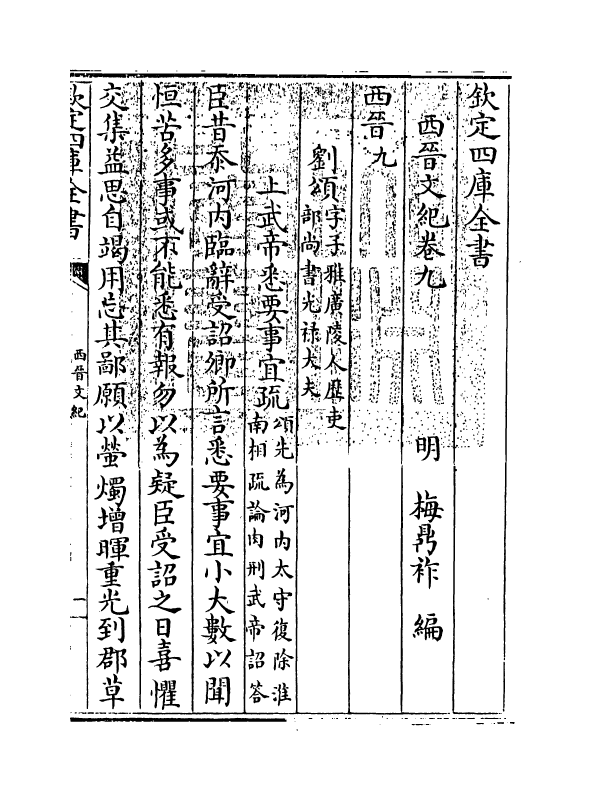 欽定四庫全書
西晉文紀卷九
明　梅鼎祚　編
西晉九
劉頌字子雅廣陵人歷吏
部尚書光祿大夫
上武帝悉要事宜疏頌先為河內太守復除淮
南相疏論肉刑武帝詔答
臣昔忝河內臨辭受詔卿所言悉要事宜小大數以聞
恒苦多事或不能悉有報勿以為疑臣受詔之日喜懼
交集益思自竭用忘其鄙願以螢燭增暉重光到郡草
欽定四庫全書
西晉文紀
一